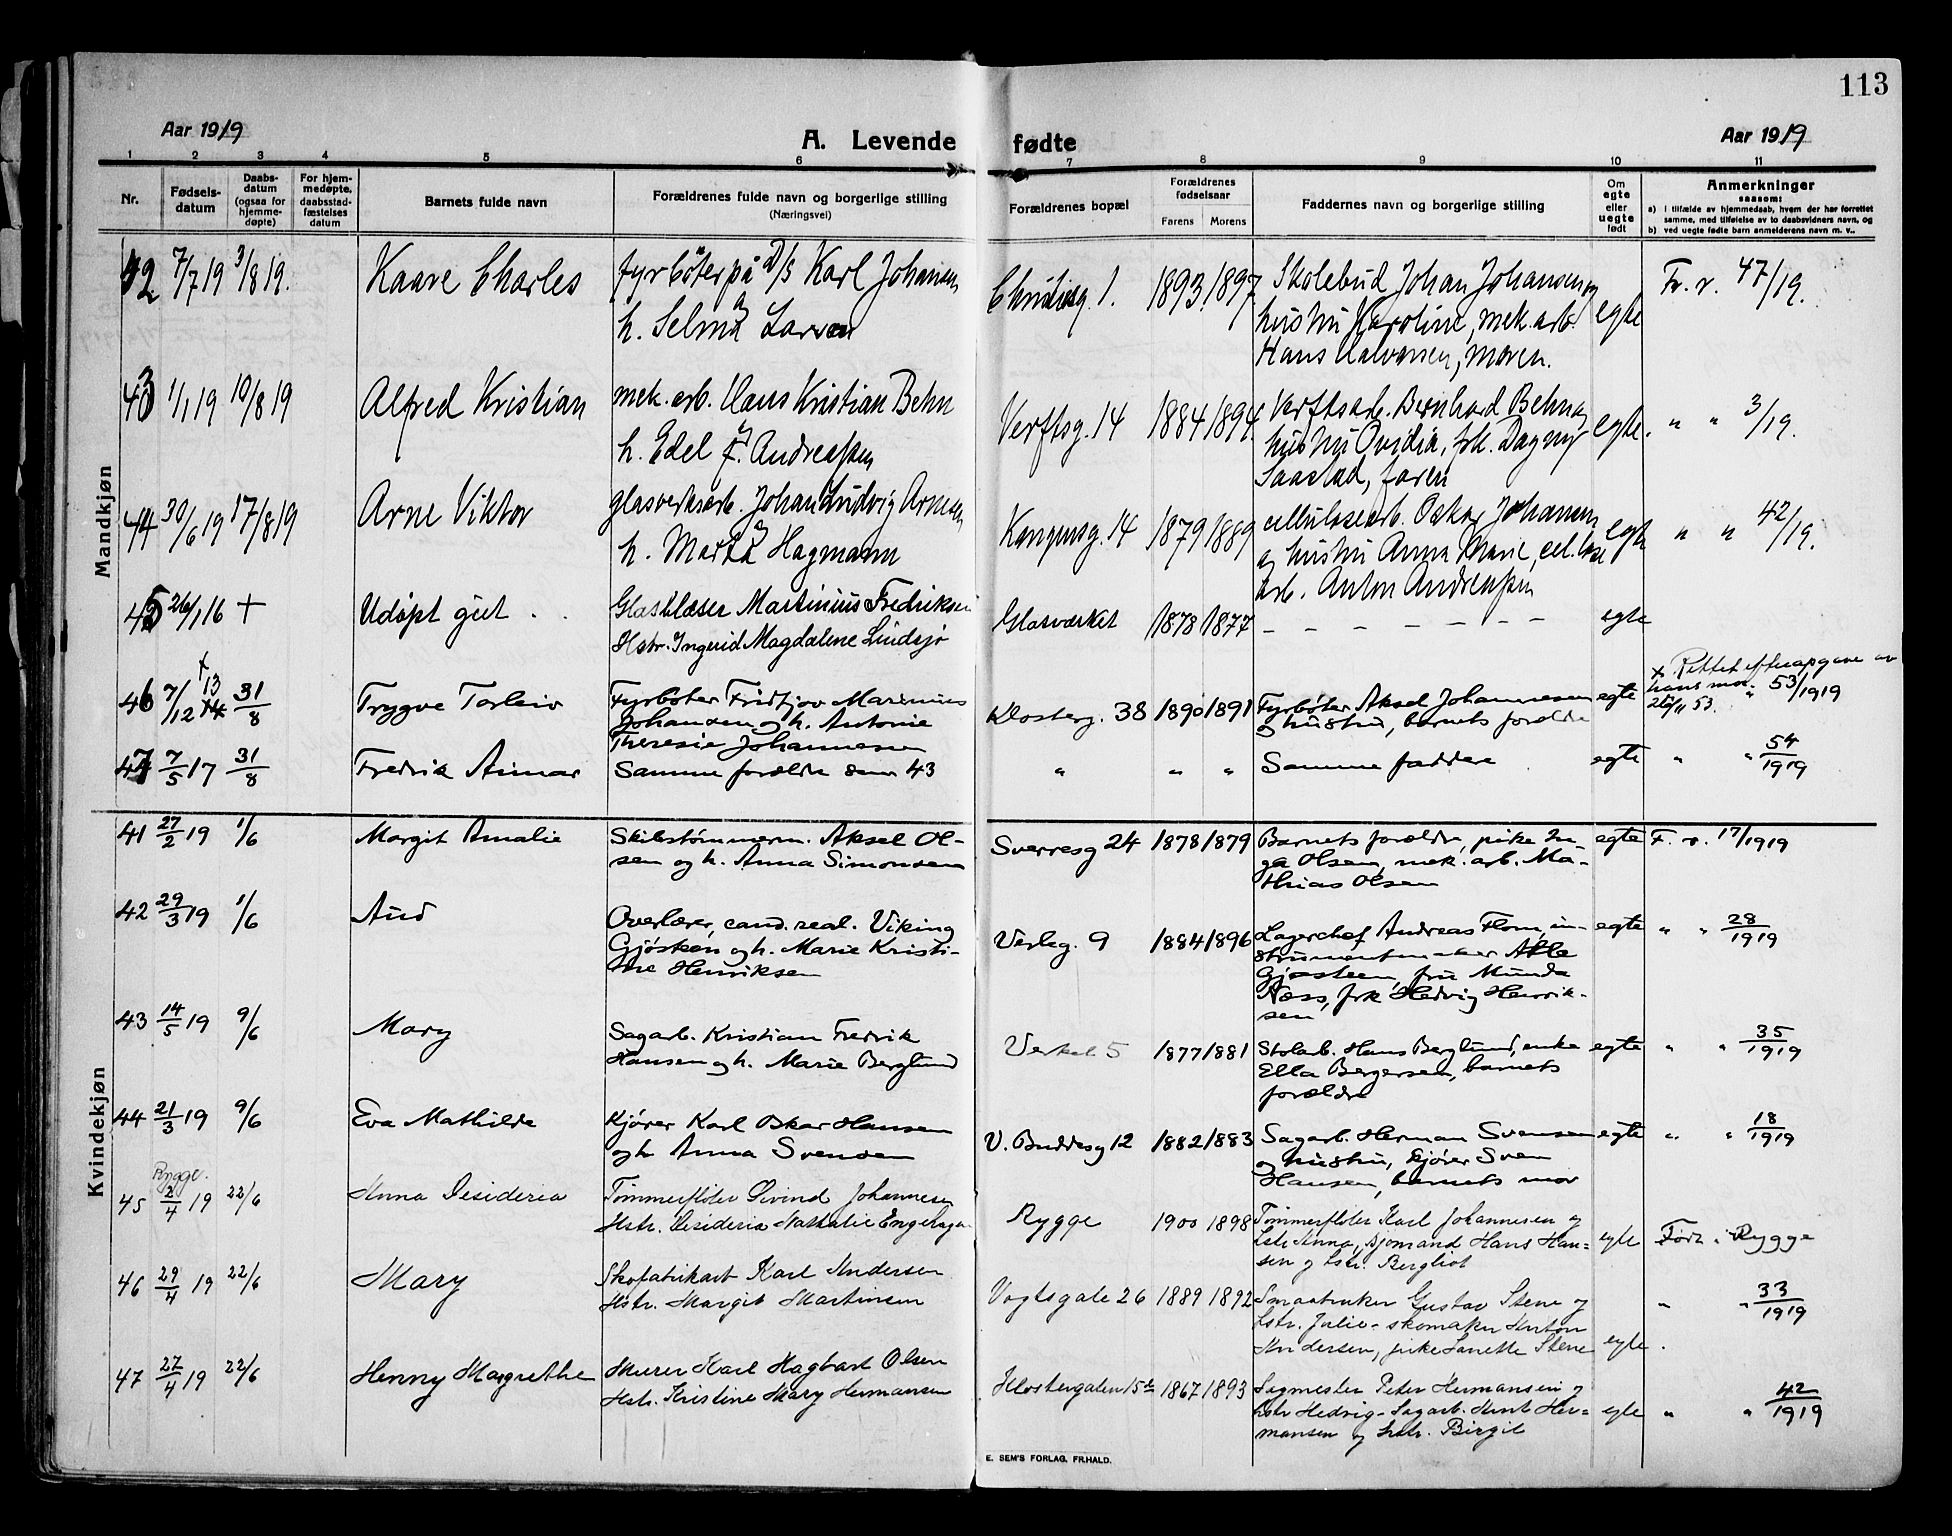 113
Aar 1919
A. Levende fødte
Aar 1919
1 2 3 4 5 6 7 8 9 10 11
Nr.
Fødsels-
datum
Daabs-
datum
(ogsaa for
hjemme-
døpte)
For hjem-
medøpte,
daabsstad-
fæstelses
datum
Barnets fulde navn
Forældrenes fulde navn og borgerlige stilling
(Næringsvei)
Forældrenes bopæl
Forældrenes
fødselsaar
Farens Morens
Faddernes navn og borgerlige stilling
Om
egte
eller
uegte
født
Anmerkninger
saasom:
a) i tilfælde av hjemmedaab, hvem der har forrettet
samme, med tilføielse av to daabsvidners navn, og
b) ved uegte fødte barn anmelderens navn m. v..
Mandkjøn
42 7/7 19 3/8 19. Kaare Charles
fyrbøter på D/S Karl Johansen
h. Selma Larsen
Christiesg. 1. 1893 1897
Skolebud Johan Johansen og
hustru Karoline, mek. arb.
Hans Halvorsen, moren.
egte Fr. r. 47/19.
43 1/1 19 10/8 19 Alfred Kristian
mek. arb. Hans Kristian Behn
h. Edel f. Andreassen
Verftsg. 14 1884 1894
Verftsarb. Bernhard Behn og
hustru Ovidia, frk. Dagny
Saastad, faren
egte. " " 3/19.
44 30/6 19 17/8 19 Arne Viktor
glasverksarb. Johan Ludvig Arnesen
h. Marta Hagmann
14 1879 1889
cellulosearb. Oskar Johansen
og hustru Anna Marie,
arb. Anton Andreassen
egte " " 42/19.
45 26/1 16 + Udøpt gut
Glasblæser Martinius Fredriksen
Hstr. Ingerid Magdalene Lindsjø
Glasværket 1878 1877 – – – – – – – egte
46 7/12 +13 14 31/8 Trygve Torleiv
Fyrbøter Fridtjov Marinius
Johansen og h. Antonie
Theresie Johannesen
Klosterg. 38 1890 1891
Fyrbøter Aksel Johannesen
og hustru, barnets forældre
egte
+ Rettet efter opgave av
hans mor. " 53/1919
53.
47 7/5 17 31/8 Fredrik Aimar
Samme forældre som 43
" " " Samme faddere egte " " 54/1919
Kvindekjøn
41 27/2 19 1/6 Margit Amalie
Skibstømmerm. Aksel Ol-
sen og h. Anna Simonsen
Sverresg 24 1878 1879
Barnets forældre, pike In-
ga Olsen, mek. arb. Ma-
thias Olsen
egte F. r. 17/1919
42 29/3 19 1/6 Aud
Overlærer, cand. real. Viking
Gjøsteen og h. Marie Kristi-
ne Henriksen
Verleg. 9 1884 1896
Lagerchef Andreas Flom, in-
strumentmaker Atle
Gjøsteen, fru Munda
Næss, frk Hedvig Henrik-
sen
egte " " 28/1919
43 14/5 19 9/6 Mary
Sagarb. Kristian Fredrik
Hansen og h. Marie Berglund
Verket 5 1877 1881
Stolarb. Hans Berglund, enke
Ella Bergersen, barnets
forældre
egte " " 35/1919
44 21/3 19 9/6 Eva Mathilde
Kjører Karl Oskar Hansen
og h Anna Svensen
V. Buddesg 12 1882 1883
Sagarb. Herman Svensen
og hustru, kjører Sven
Hansen, barnets mor
egte " " 18/1919
Rygge.
45 2/4 19 22/6 Anna Desideria
Tømmerfløter Eivind Johannesen
Hstr. Desideria Nathalie
Rygge 1900 1898
Tømmerfløter Karl Johannesen og
hstr Anna, sjømand Hans Han-
sen og hstr. Bergliot
egte Født i Rygge
46 29/4 19 22/6 Mary
Skofabrikarb Karl Andersen
Hstr. Margit Martinsen
Vogtsgate 26 1889 1892
Smaabruker Gustav Stene og
hstr. Julie - skomaker Anton
Andersen, pike Lanette Stene
egte. " " 33/1919
47 27/4 19 22/6 Henny Magrethe
Murer Karl Hagbart Olsen
Hstr. Kristine Mary Hermansen
Klostergaten 15b 1867 1893
Sagmester Peter Hermansen og
hstr Hedvig - Sagarb. Knut Her-
mansen og hstr. Birgit
egte " " 42/1919
E. SEM'S FORLAG, FR.HALD.